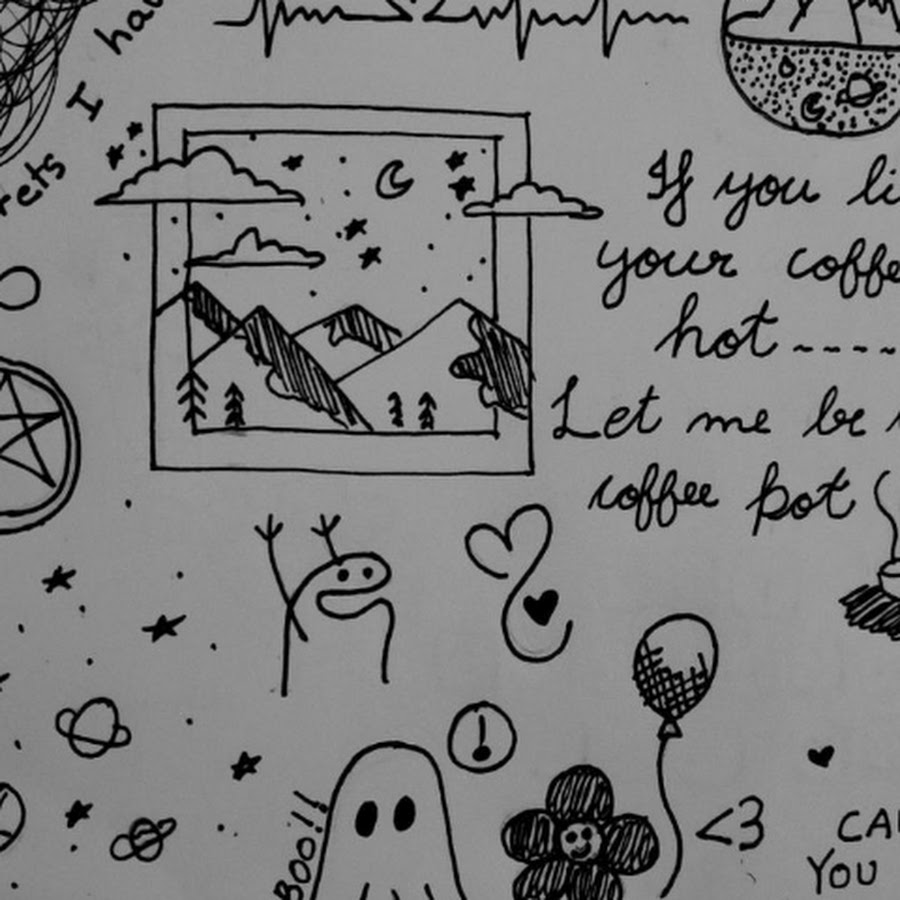 I hau
rets
If you li
your coffe
hot ----
Let me be
coffee pot
BOO!!
<3
CA
YOU